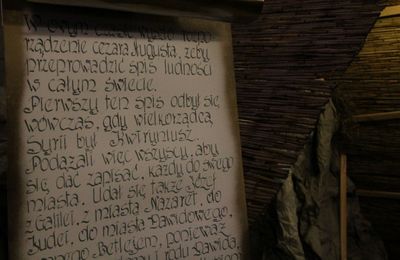 W owym czasie wyszło rozpo-
rządzenie cezara Augusta, żeby
przeprowadzić spis ludności
w całym świecie.
Pierwszy ten spis odbył się
wówczas, gdy wielkorządcą
Syrii był Kwiryniusz.
Podążali więc wszyscy, aby
się dać zapisać, każdy do swego
miasta. Udał się także Józef
z Galilei, z miasta Nazaret, do
Judei, do miasta Dawidowego,
Betlejem, ponieważ
rodu Dawida,